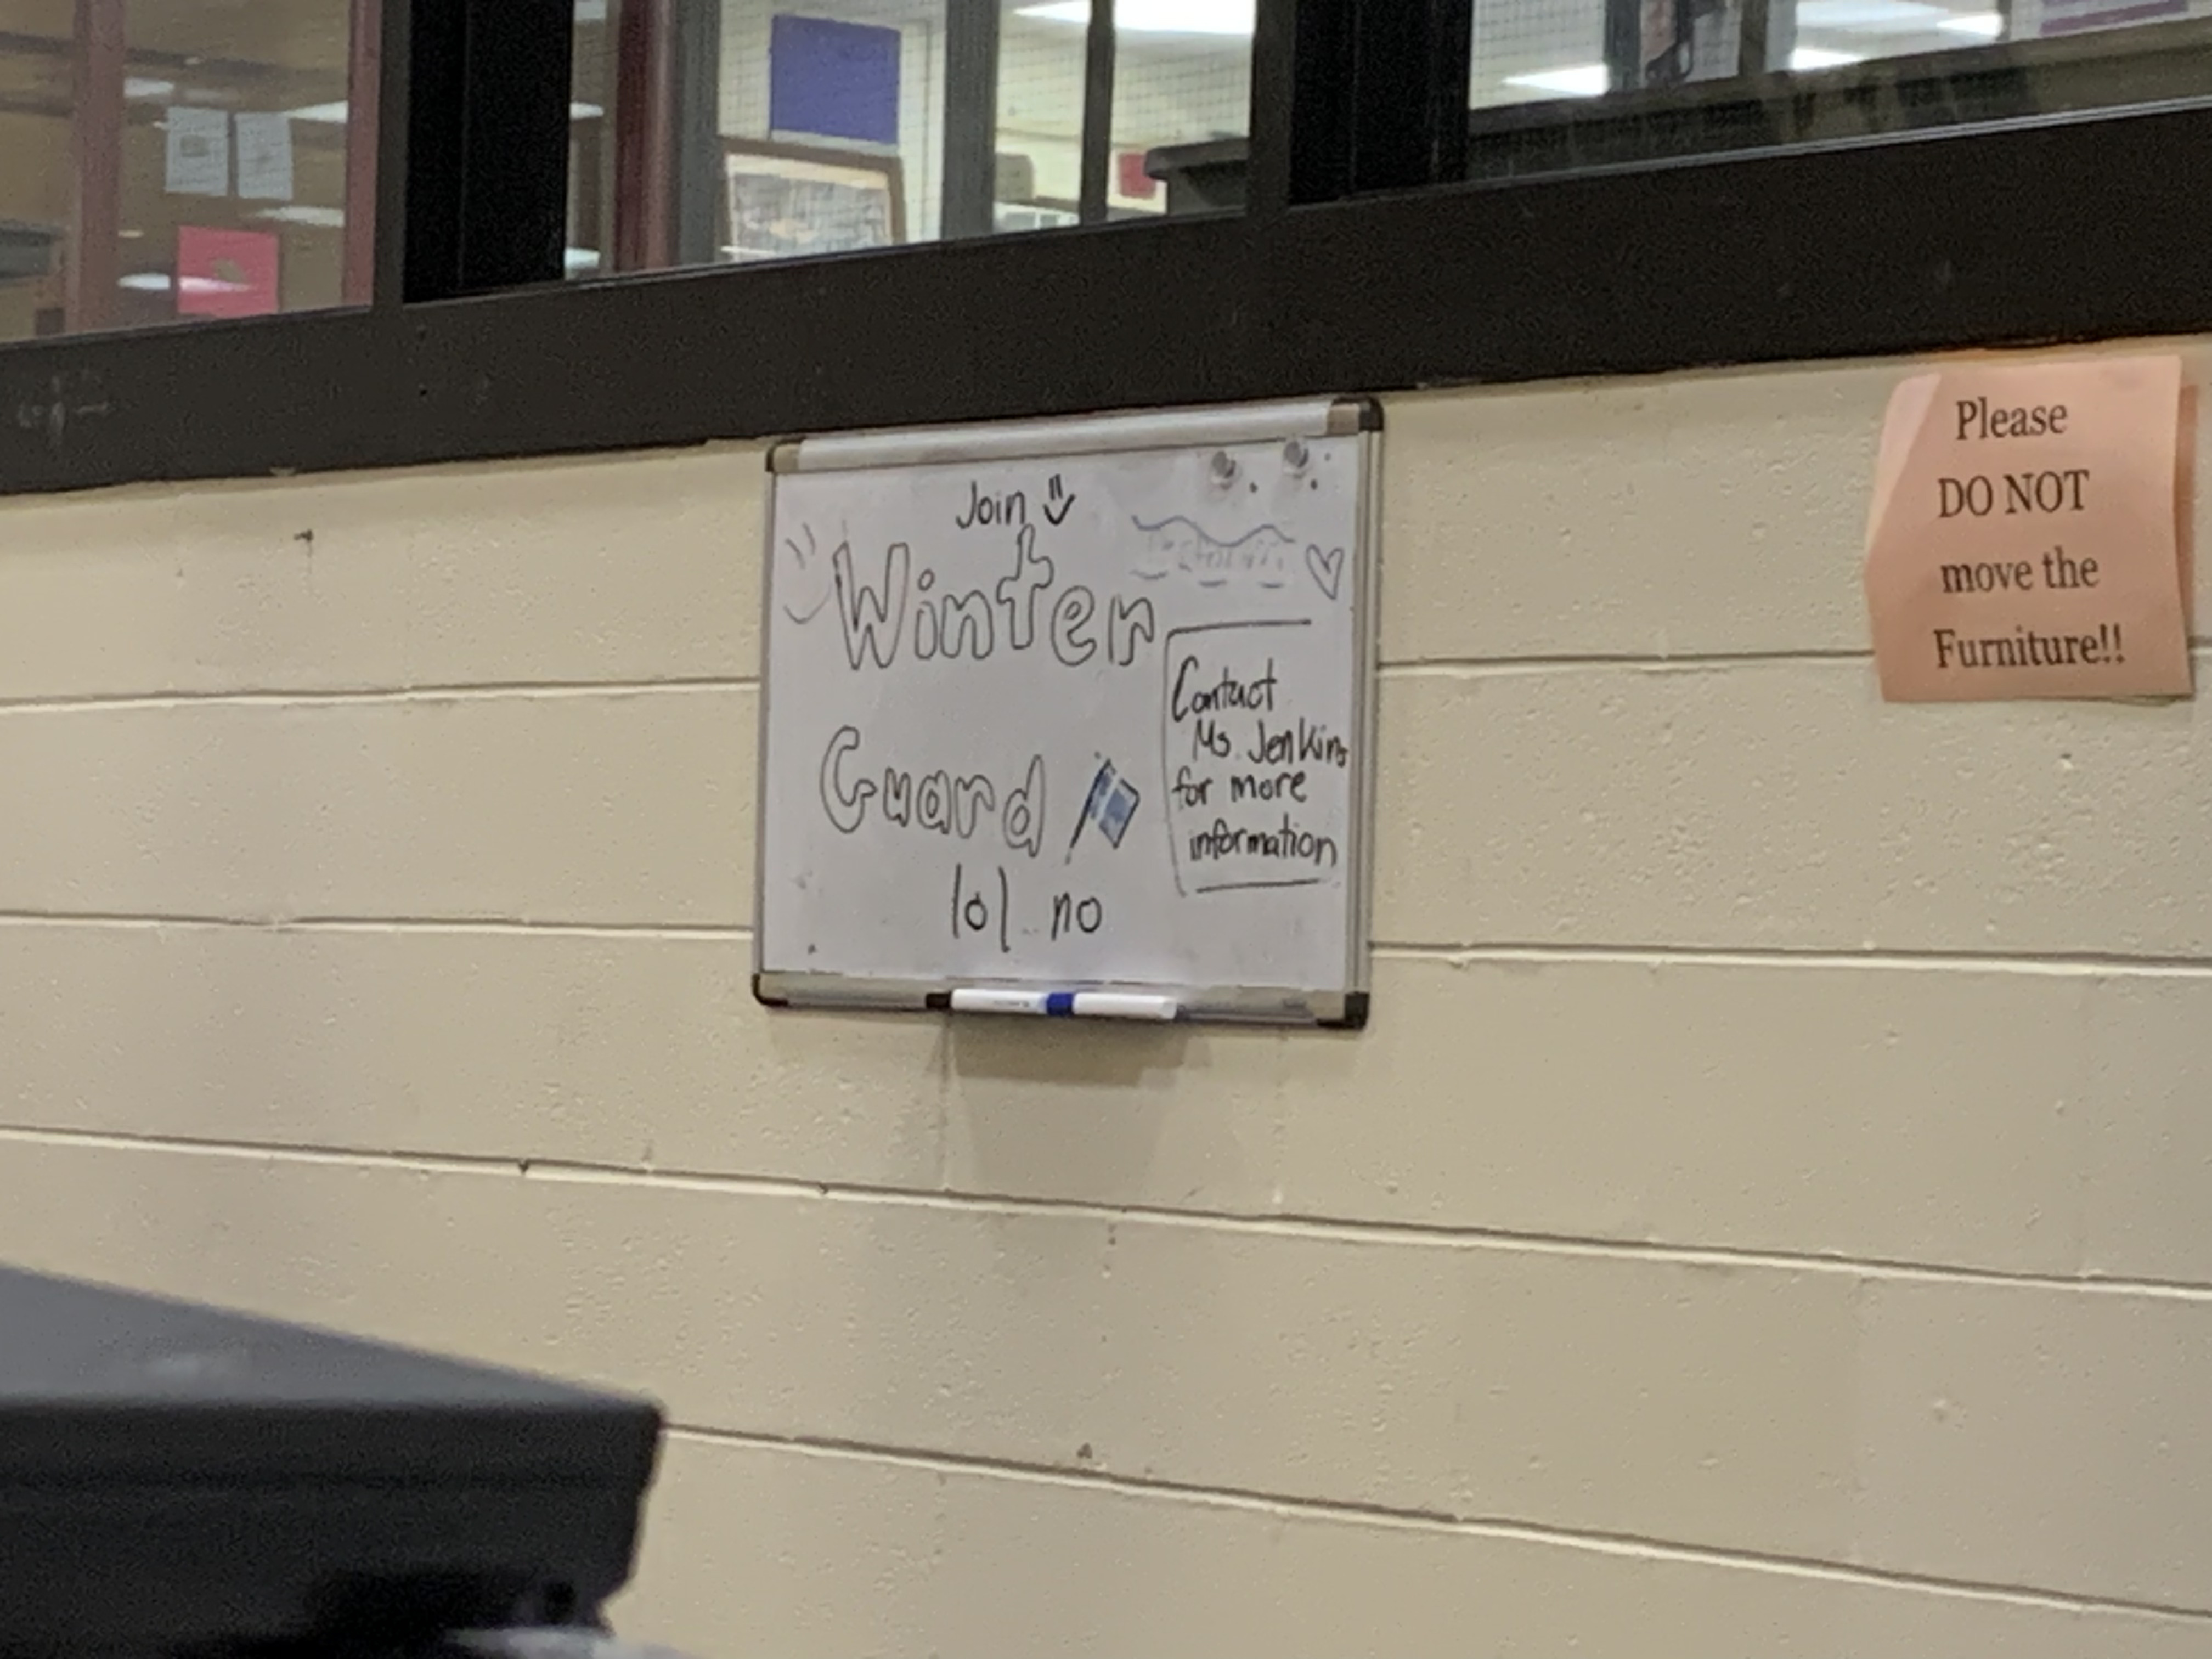 Join
Winter
Guard
lol no
Contact
Ms. Jenkins
for more
information
Please
DO NOT
move the
Furniture!!